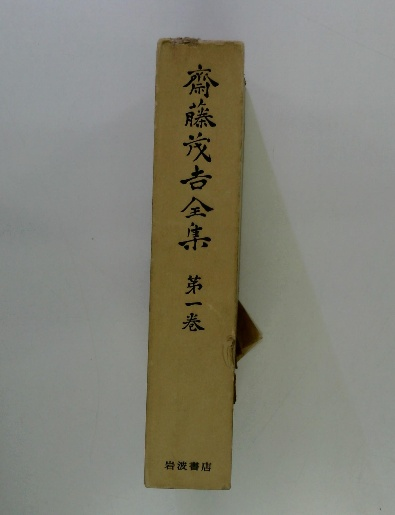 齋藤茂吉全集
第一巻
岩波書店